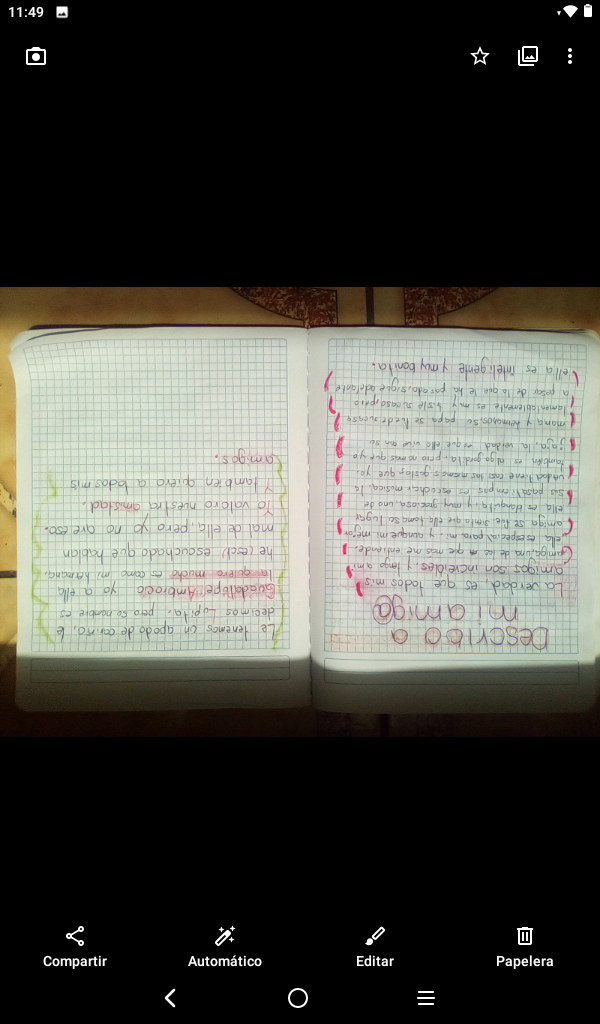 11:49
Describo a
mi amig@
La verdad, es que todos mis
amigos son increíbles, y tengo ami
de las que mas me entiende,
ella es especial para mi, y aunque mi mejor
amigo se fue, siento que ella tomó su lugar
ella es flaquita, y muy graciosa, uno de
sus pasatiempos es escuchar música, la
verdad tiene los mismos gustos que yo.
también es algo gordita, pero no mas que yo
jaja, la verdad es que ella vive en su
mama y hermanos, su papa se fue de su casa
lamentablemente es muy triste su caso, pero
a pesar de lo que le ha pasado, sigue adelante
ella es inteligente y muy bonita.
Le tenemos un apodo de cariño, le
decimos Lupita, pero su nombre es
Guadalupe Ambrocio yo a ella
la quiero mucho es como mi hermana,
he escuchado que hablan
mal de ella, pero yo no creo eso.
Yo valoro nuestra amistad.
Y también quiero a todos mis
amigos.
Compartir
Automático
Editar
Papelera